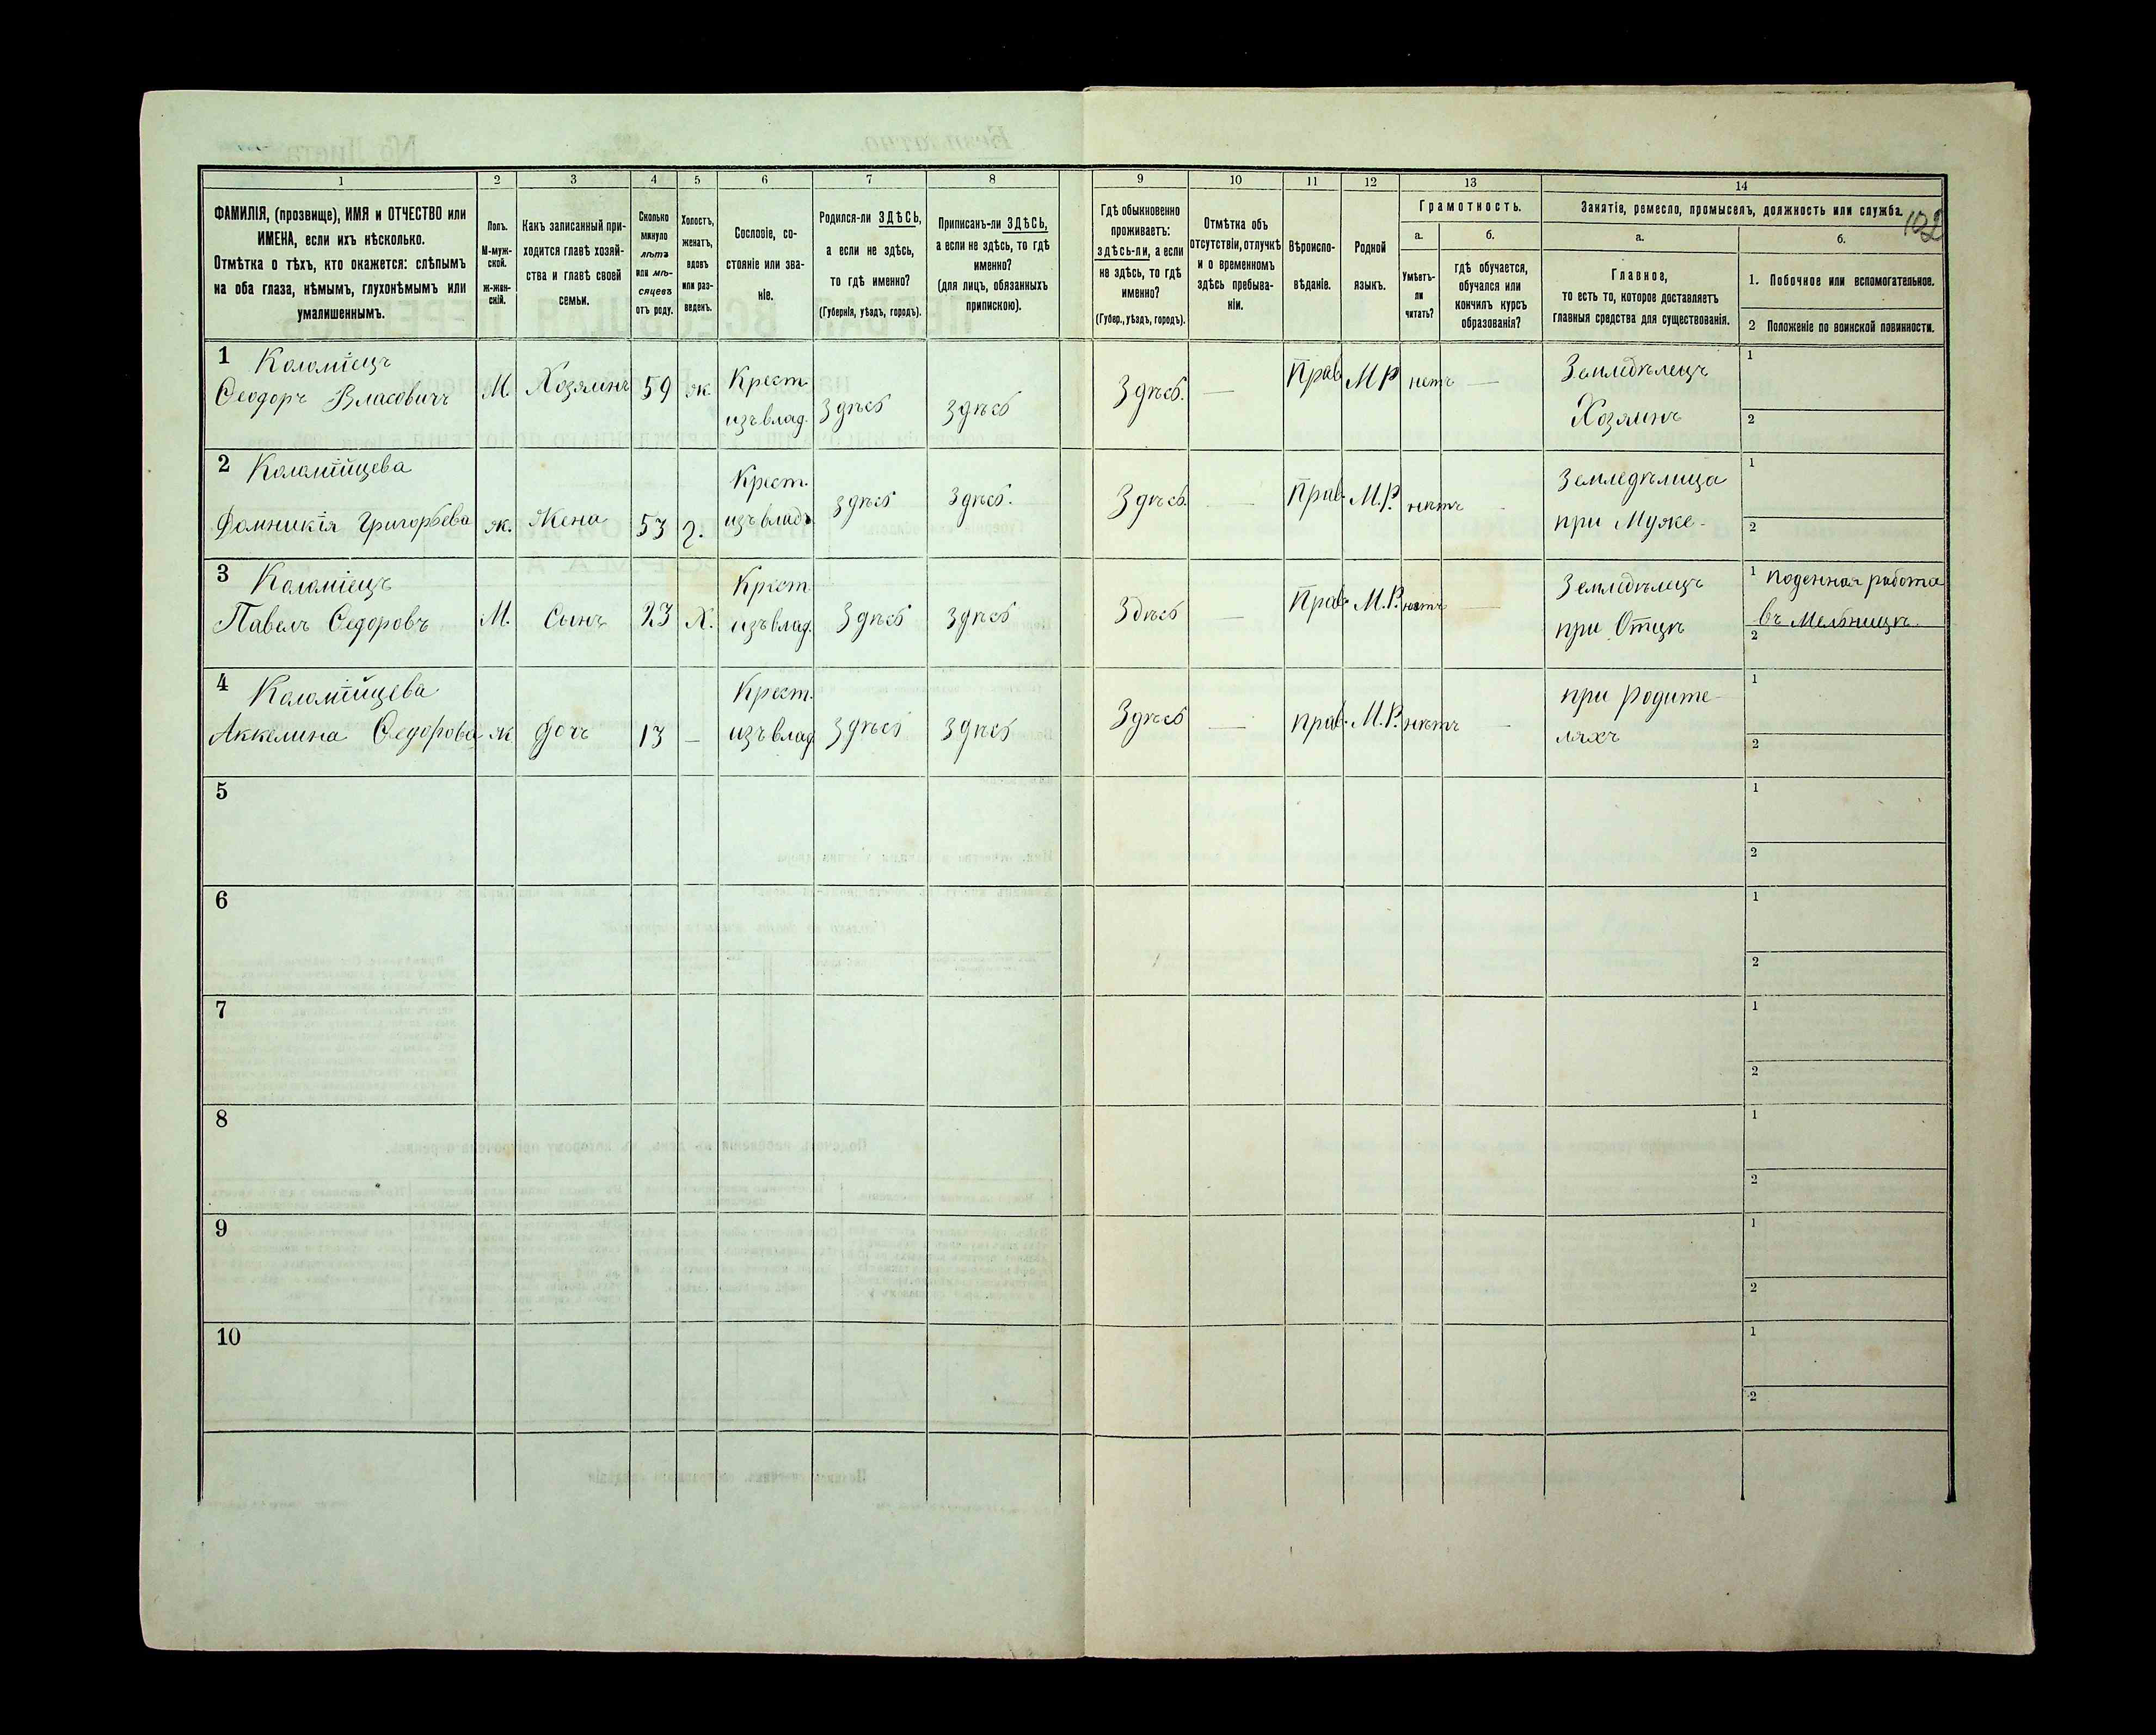 1 2 3 4 5 6 7 8 9 10 11 12 13 14
102
ФАМИЛІЯ, (прозвище), ИМЯ и ОТЧЕСТВО или
ИМЕНА, если ихъ нѣсколько.
Отмѣтка о тѣхъ, кто окажется: слѣпымъ
на оба глаза, нѣмымъ, глухонѣмымъ или
умалишеннымъ.
Полъ.
М-муж-
ской.
ж-жен-
скій.
Какъ записанный при-
ходится главѣ хозяй-
ства и главѣ своей
семьи.
Сколько
минуло
лѣтъ
или мѣ-
сяцевъ
отъ роду.
Холостъ,
женатъ,
вдовъ
или раз-
веденъ.
Сословіе, со-
стояніе или зва-
ніе.
Родился-ли ЗДѢСЬ,
а если не здѣсь,
то гдѣ именно?
(Губернія, уѣздъ, городъ).
Приписанъ-ли ЗДѢСЬ,
а если не здѣсь, то гдѣ
именно?
(для лицъ, обязанныхъ
припискою).
Гдѣ обыкновенно
проживаетъ:
здѣсь-ли, а если
не здѣсь, то гдѣ
именно?
(Губер., уѣздъ, городъ).
Отмѣтка объ
отсутствіи, отлучкѣ
и о временномъ
здѣсь пребыва-
ніи.
Вѣроиспо-
вѣданіе.
Родной
языкъ.
Грамотность.
а.
Умѣетъ-
ли
читать?
б.
гдѣ обучается,
обучался или
кончилъ курсъ
образованія?
Занятіе, ремесло, промыселъ, должность или служба.
а.
Главное,
то есть то, которое доставляетъ
главныя средства для существованія.
б.
1. Побочное или вспомогательное.
2 Положеніе по воинской повинности.
1 Коломіецъ
Ѳеодоръ Власовичъ М. Хозяинъ 59 ж. Крест. изъ влад. здѣсь здѣсь Здѣсь. — Прав МР нетъ — Земледѣлецъ
Хозяинъ
1
2
2 Коломійцева
Домникія Григорьева ж. Жена 53 З. Крест. изъ влад. здѣсь здѣсь. Здѣсь — Прав. М.Р. нѣтъ - Земледѣлица
при Муже-
1
2
3 Коломіецъ
Павелъ Ѳедоровъ М. Сынъ 23 Х. Крест. изъ влад. Здѣсь здѣсь Здѣсь — Прав. М.Р. нѣтъ — Земледѣлецъ
при Отцѣ
1 Поденная работа
въ Мельницѣ.
2
4 Коломійцева
Аккелина Ѳедорова ж Дочь 13 — Крест. изъ влад. Здѣсь Здѣсь Здѣсь — прав. М.Р. нѣтъ — при родите-
ляхъ
1
2
5 1
2
6 1
2
7 1
2
8 1
2
9 1
2
10 1
2